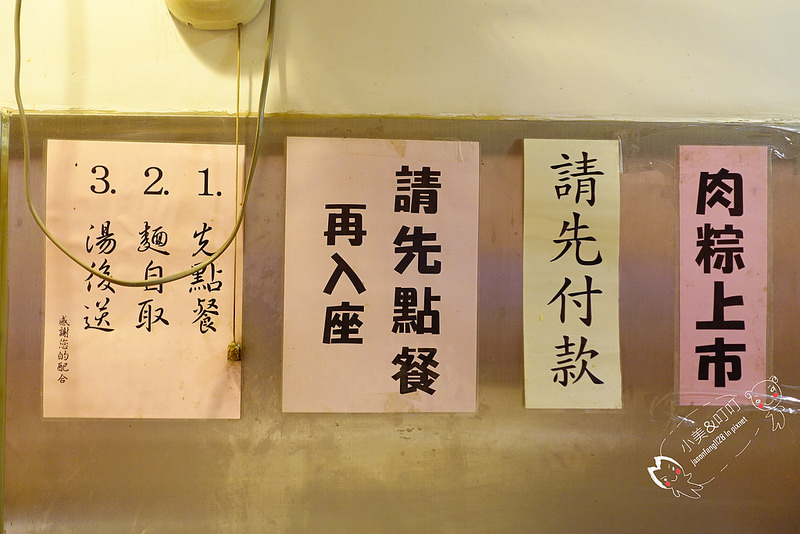 1. 先點餐
2. 麵自取
3. 湯後送
感謝您的配合
請先點餐
再入座
請先付款
肉粽上市
小美&叮叮
jasonfang1128 in pixnet